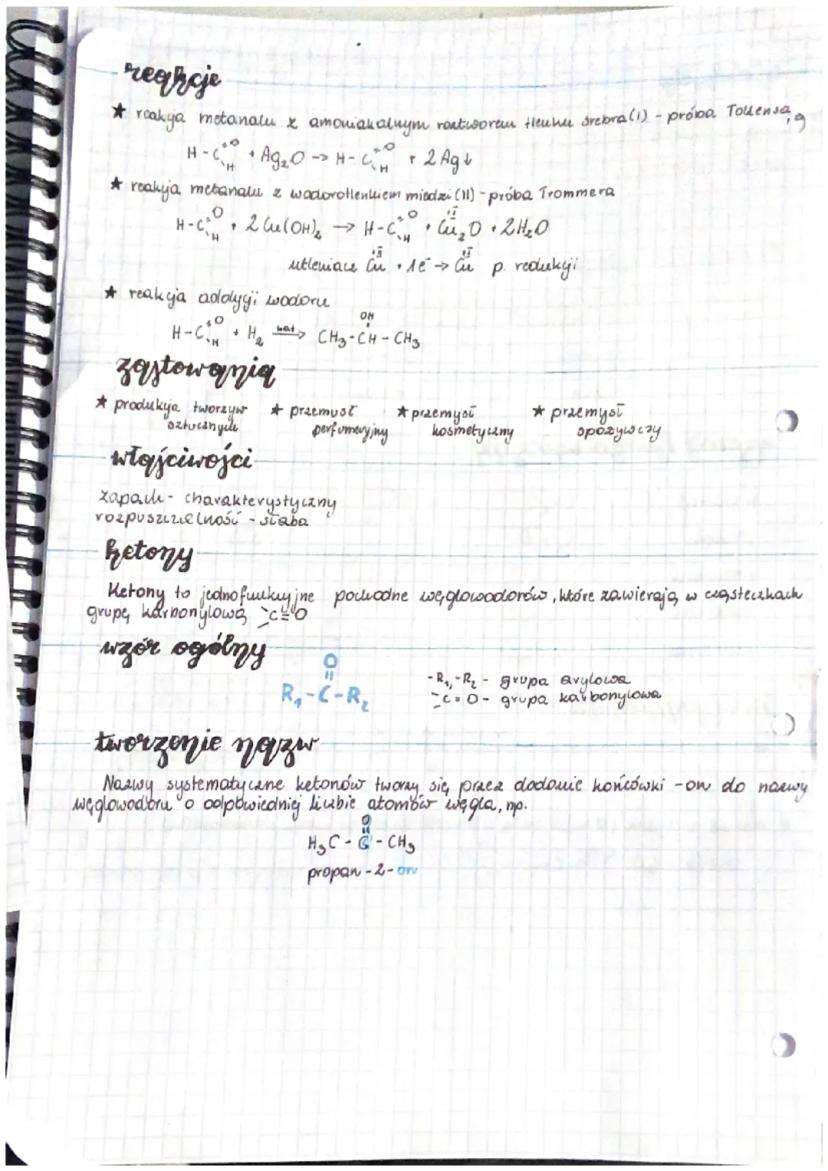 reakcje
★ reakcja metanalu z amoniakalnym roztworem tlenku srebra(I) - próba Tollensa
H-C=O H + Ag₂O -> H-C=O H + 2Ag↓
★ reakcja metanalu z wodorotlenkiem miedzi (II) - próba Trommera
H-C=O H + 2Cu(OH)₂ → H-C=O H + Cu₂O + 2H₂O
utleniacz Cu + 1e⁻ → Cu p. redukcji
★ reakcja addycji wodoru
OH
H-C=O H + H₂ kat> CH₃-CH-CH₃
zastosowania
★ produkcja tworzyw ★ przemysł ★ przemysł ★ przemysł
sztucznych perfumeryjny kosmetyczny spożywczy
właściwości
zapach - charakterystyczny
rozpuszczelność - słaba
ketony
Ketony to jednofunkcyjne pochodne węglowodorów, które zawierają w cząsteczkach
grupę karbonylową >C=O
wzór ogólny
O
||
R₁-C-R₂
-R₁,-R₂ - grupa arylowa
>C=O - grupa karbonylowa
tworzenie nazw
Nazwy systematyczne ketonów tworzy się przez dodanie końcówki -on do nazwy
węglowodoru o odpowiedniej liczbie atomów węgla, np.
O
||
H₃C - C - CH₃
propan-2-on